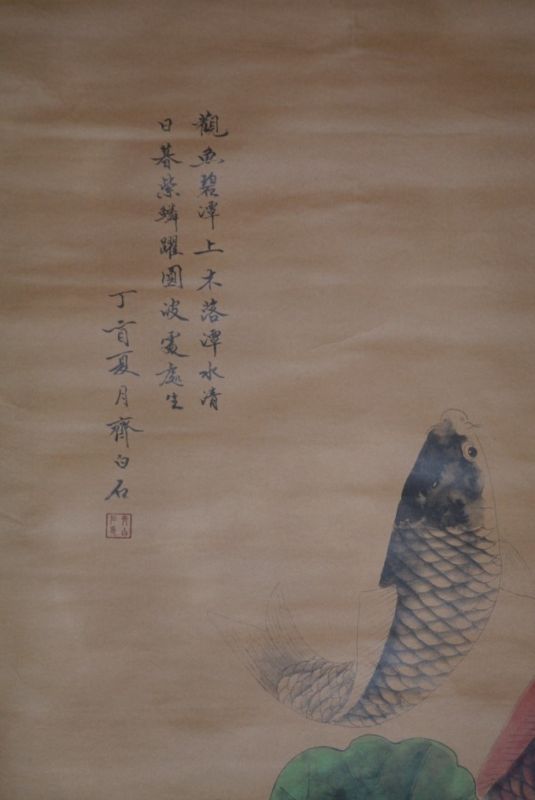 觀魚碧潭上木落潭水清
日暮紫鱗躍圓波處處生
丁酉夏月齊白石